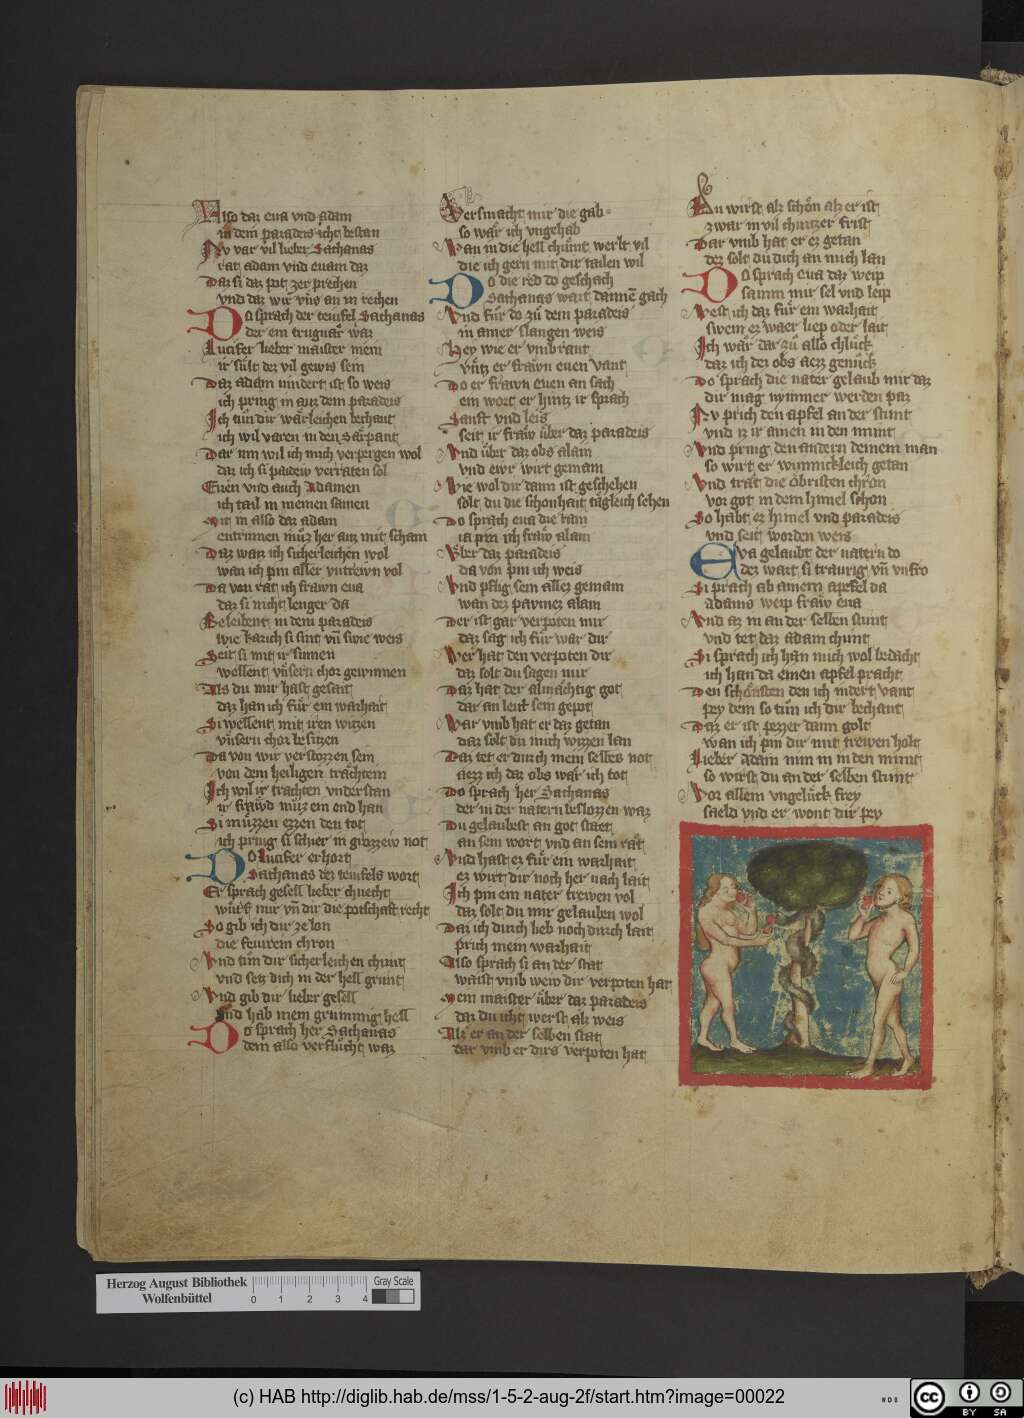 Also daz eua vnd adam
in dem paradeis icht bestan
Nv var vil lieber Sathanas
rat adam vnd euam daz
Daz si daz pot zer prechen
vnd daz wir vns an in rechen
Do sprach der teufel Sathanas
der ein trugnar waz
Lucifer lieber maister mein
ir sült dez vil gewis sein
Daz adam nindert ist so weis
ich pring in auz dem paradeis
Ich tun dir wärleichen bechant
ich wil varen in den Särpant
Dar inn wil ich mich verpergen wol
daz ich si paidew verraten sol
Euen vnd auch Adamen
ich tail in meinen samen
Mit in also daz adam
entrinnen muz her auz mit scham
Daz waiz ich sicherleichen wol
wan ich pin aller vntrewn vol
Da von rat ich frawn eua
daz si nicht lenger da
Beleibent in dem paradeis
wie kaisch si sint vn swie weis
Seit si mit ir sinnen
wellent vnsern chor gewinnen
Als du mir hast gesait
daz han ich für ein warhait
Si wellent mit iren witzen
vnsern chor besitzen
Da von wir verstozzen sein
von dem heiligen trächtein
Ich wil ir trachten vnderstan
ir fräwd muz ein end han
Si müzzen ezzen den tot
ich pring si schier in grozzew not
Do Lucifer erhort
Sathanas dez teufels wort
Er sprach gesell lieber chnecht
würst mir vn dir die potschaft recht
So gib ich dir ze lon
die feurein chron
Vnd tun dir sicherleichen chunt
vnd setz dich in der hell grunt
Vnd gib dir lieber gesell
Vnd hab mein grimmig hell
Do sprach her Sathanas
dem also verflücht waz
Versmacht mir die gab
so wär ich vngehab
Wan in die hell chumt werlt vil
die ich gern mit dir tailen wil
Do die red do geschach
Sathanas wart dannē gach
Vnd für do zu dem paradeis
in ainer slangen weis
Hey wie er vmb rant
vntz er frawn euen vant
Do er frawn euen an sach
ein wort er hintz ir sprach
Sanft vnd leis
seit ir fraw über daz paradeis
Vnd über daz obs alain
vnd ewr wirt gemain
Wie wol dir dann ist geschehen
solt du die schonhait tägleich sehen
Do sprach eua die rain
ia pin ich fraw alain
Vber daz paradeis
da von pin ich weis
Vnd pflig sein allez gemain
wan dez pavmez alain
Der ist gar verpoten mir
daz sag ich für war dir
Wer hat den verpoten dir
daz solt du sagen mir
Daz hat der almächtig got
dar an leut sein gepot
War vmb hat er daz getan
daz solt du mich wizzen lan
Daz tet er durch mein selbes not
aezz ich daz obs wär ich tot
Do sprach her Sathanas
der in der natern beslozzen waz
Du gelaubest an got staet
an sein wort vnd an sein rät
Vnd hast ez für ein warhait
ez wirt dir noch her nach lait
Ich pin ein nater trewen vol
daz solt du mir gelauben wol
Daz ich durch lieb noch durch lait
prich mein warhait
Also sprach si an der stat
waist vmb wew dir verpoten hat
Mein maister über daz paradeis
daz du icht werst alz weis
Alz er an der selben stat
dar vmb er dirs verpoten hat
Du wirst alz schön alz er ist
zwar in vil churtzer frist
Dar vmb hat er ez getan
dez solt du dich an mich lan
Do sprach eua daz weip
samm mir sel vnd leip
West ich daz für ein warhait
swem ez waer liep oder lait
Ich wär dar zu also chlück
daz ich dez obs aezz genück
Do sprach die nater gelaub mir daz
dir mag nymmer werden paz
Nv prich den apfel an der stunt
vnd iz ir ainen in den munt
Vnd pring den andern deinem man
so wirt er wunnickleich getan
Vnd trät die öbristen chron
vor got in dem himel schon
So habt ez himel vnd paradeis
vnd seit worden weis
Eva gelaubt der natern do
dez wart si traurig vn vnfro
Si prach ab ainem apefel da
adams weip fraw eua
Vnd az in an der selben stunt
vnd tet daz adam chunt
Si sprach ich han mich wol bedächt
ich han da einen apfel pracht
Den schönsten den ich indert vant
pey dem so tun ich dir bechant
Daz er ist pezzer dann golt
wan ich pin dir mit trewen holt
Lieber adam nim in in den munt
so wirst du an der selben stunt
Vor allem vngelück frey
saeld vnd er wont dir pey
Herzog August Bibliothek
Wolfenbüttel
0 1 2 3 4
Gray Scale
(c) HAB http://diglib.hab.de/mss/1-5-2-aug-2f/start.htm?image=00022
WDB
cc BY SA